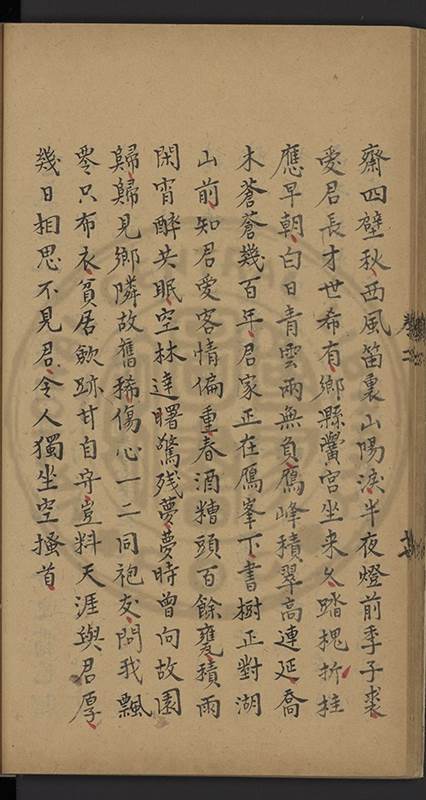 齋四壁秋西風笛裏山陽淚半夜燈前季子裘
愛君長才世希有鄉縣黌宮坐来久踏槐折桂
應早朝白日青雲兩無負鴈峰積翠高連延喬
木蒼蒼幾百年君家正在鴈峯下書樹正對湖
山前知君愛客情偏重春酒糟頭百餘甕積雨
閑宵醉共眠空林達曙驚残夢夢時曾向故園
歸歸見鄉隣故舊稀傷心一二同袍友問我飄
零只布衣貧居歛跡甘自守豈料天涯與君厚
幾日相思不見君令人獨坐空搔首